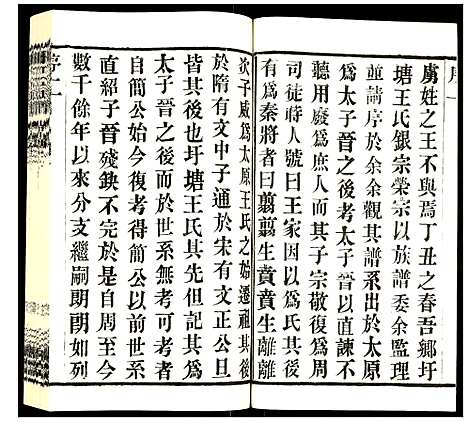 序一
虜姓之王不與焉丁丑之春吾鄉圩
塘王氏銀宗榮宗以族譜委余監理
並請序於余余觀其譜系出於太原
爲太子晉之後考太子晉以直諫不
聽用廢爲庶人而其子宗敬復爲周
司徒時人號曰王家因以爲氏其後
有爲秦將者曰翦翦生賁賁生離離
次子威爲太原王氏之始遷祖其後
於隋有文中子通於宋有文正公旦
皆其後也圩塘王氏其先但知其爲
太子晉之後而於世系無考可考者
自簡公始今復考得簡公以前世系
直紹子晉殘鈌不完於是自周至今
數千餘年以來分支繼嗣朗朗如列
序二